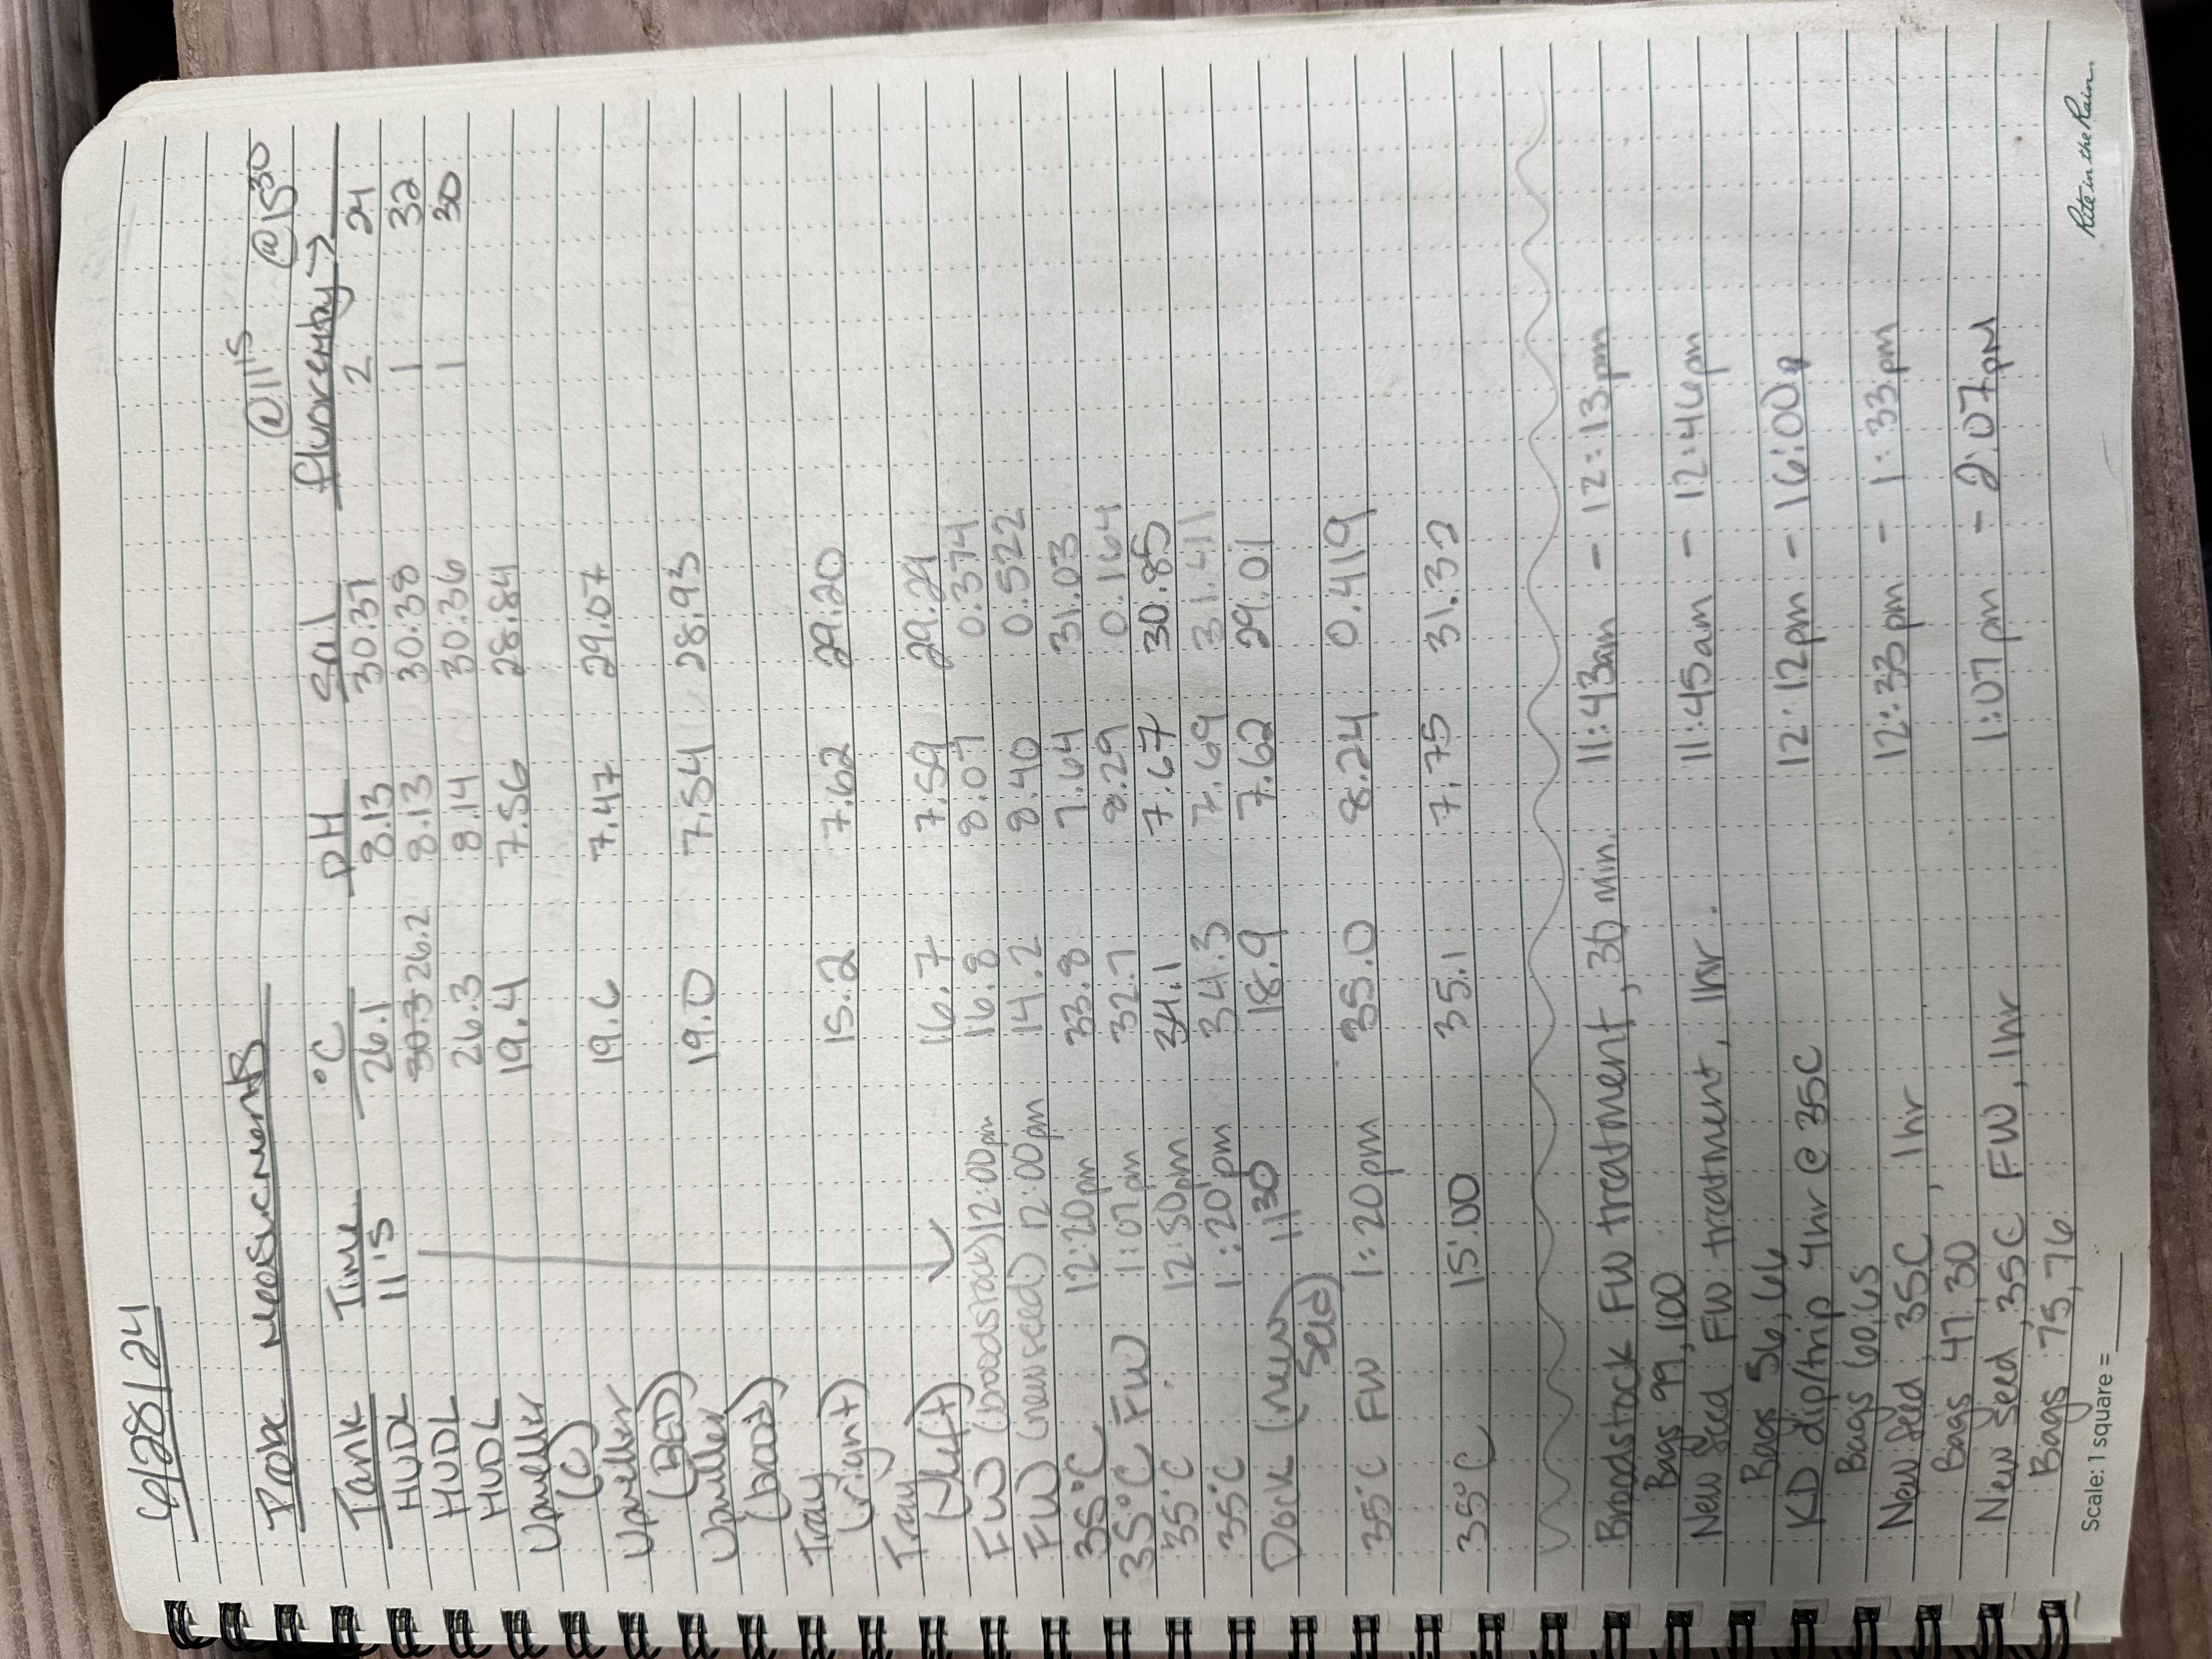 6/28/24
Probe Measurments
@11¹⁵ @15³⁰
Tank Time °C pH Sal fluorenty →
HUDL 11¹⁵ 26.1 8.13 30.37 2 24
HUDL 30.3 26.2 8.13 30.38 1 32
HUDL 26.3 8.14 30.36 1 30
Upweller 19.4 7.56 28.84
(C)
Upweller 19.6 7.47 29.07
(BED)
Upweller 19.0 7.54 28.93
(brood)
Tray
(right) 15.2 7.62 29.20
Tray
(left) 16.7 7.59 29.29
FW (broodstock) 12:00pm 16.8 8.07 0.374
FW (new seed) 12:00pm 14.2 8.40 0.522
35°C 12:20pm 33.8 7.64 31.03
35°C FW 1:07pm 32.7 8.29 0.164
35°C 12:50pm 34.1 7.67 30.85
35°C 1:20pm 34.3 7.69 31.411
Dock (new 11³⁰ 18.9 7.62 29.01
seed)
35°C FW 1:20pm 35.0 8.24 0.419
35°C 15:00 35.1 7.75 31.32
Broodstock FW treatment, 30 min. 11:43am - 12:13pm
Bags 99,100
New Seed FW treatment, 1hr. 11:45am - 12:46pm
Bags 56,66
KD dip/trip 4hr @ 35C 12:12pm - 16:00
Bags 60,65
New Seed, 35C, 1hr 12:33pm - 1:33pm
Bags 47,30
New Seed, 35C FW, 1hr 1:07pm - 2:07pm
Bags 75,76
Scale: 1 square =______
Rite in the Rain.